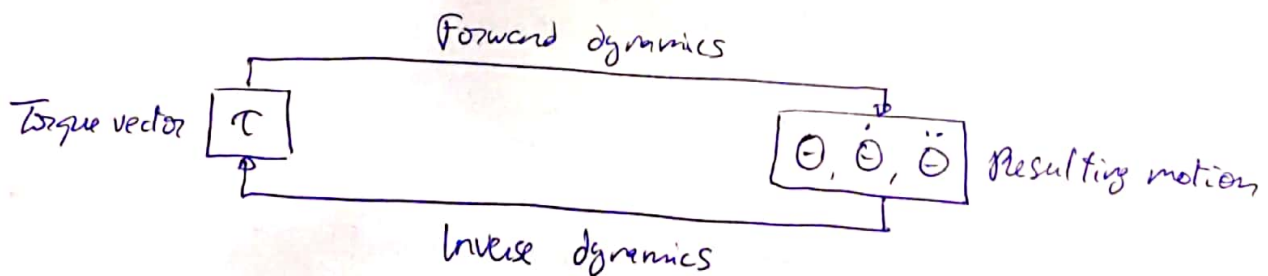 Forward dynamics
Torque vector τ
Θ, Θ̇, Θ̈ Resulting motion
Inverse dynamics